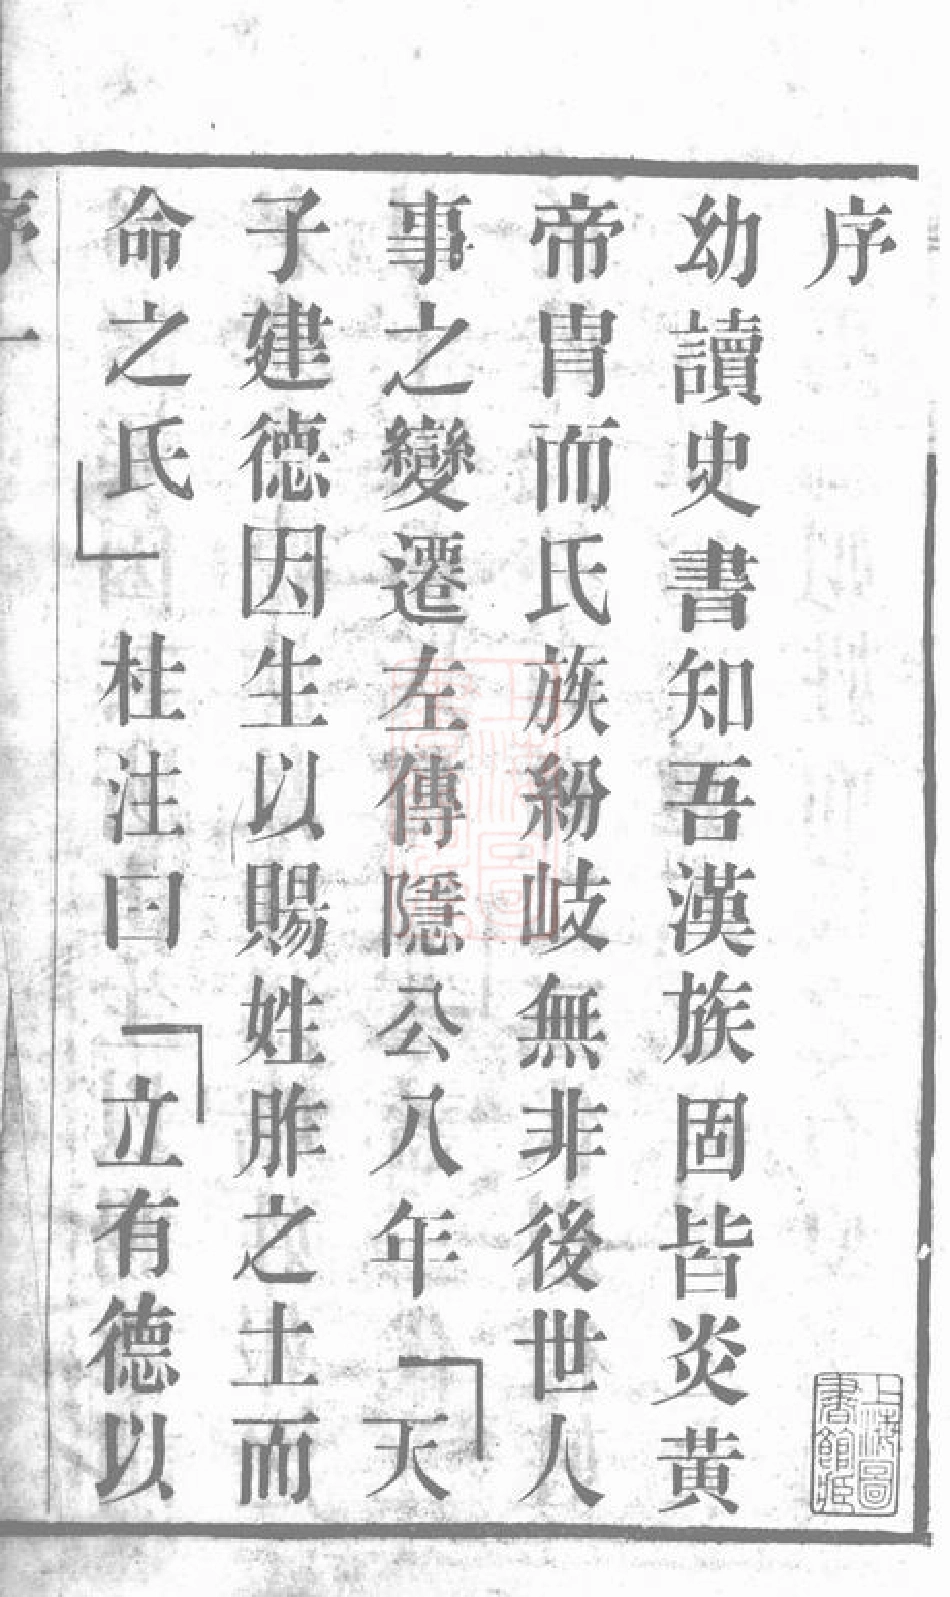 序
幼讀史書知吾漢族固皆炎黃
帝胄而氏族紛歧無非後世人
事之變遷左傳隱公八年「天
子建德因生以賜姓胙之土而
命之氏」杜注曰「立有德以
序 一
上海圖書館藏